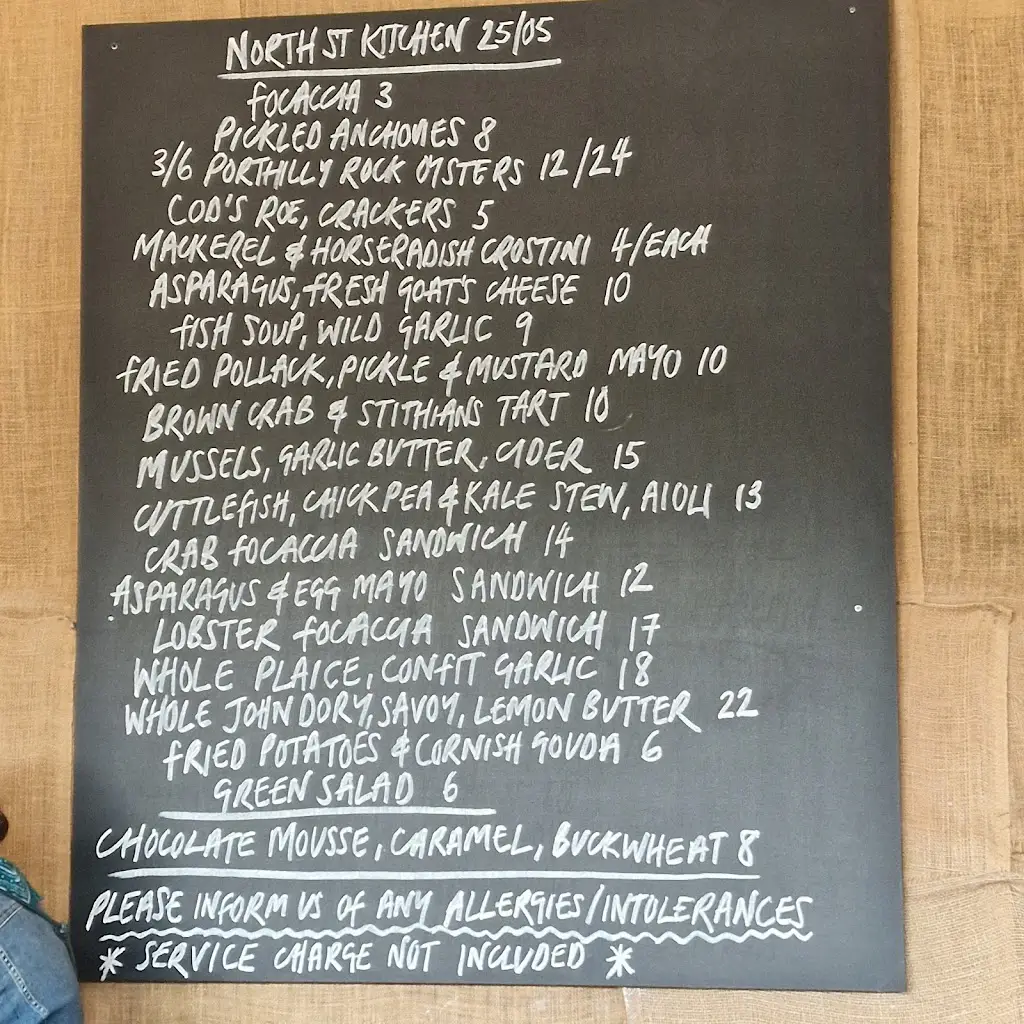 NORTH ST KITCHEN 25/05
FOCACCIA 3
PICKLED ANCHOVIES 8
3/6 PORTHILLY ROCK OYSTERS 12/24
COD'S ROE, CRACKERS 5
MACKEREL & HORSERADISH CROSTINI 4/EACH
ASPARAGUS, FRESH GOAT'S CHEESE 10
FISH SOUP, WILD GARLIC 9
FRIED POLLACK, PICKLE & MUSTARD MAYO 10
BROWN CRAB & STITHIANS TART 10
MUSSELS, GARLIC BUTTER, CIDER 15
CUTTLEFISH, CHICKPEA & KALE STEW, AIOLI 13
CRAB FOCACCIA SANDWICH 14
ASPARAGUS & EGG MAYO SANDWICH 12
LOBSTER FOCACCIA SANDWICH 17
WHOLE PLAICE, CONFIT GARLIC 18
WHOLE JOHN DORY, SAVOY, LEMON BUTTER 22
FRIED POTATOES & CORNISH GOUDA 6
GREEN SALAD 6
CHOCOLATE MOUSSE, CARAMEL, BUCKWHEAT 8
PLEASE INFORM US OF ANY ALLERGIES/INTOLERANCES
* SERVICE CHARGE NOT INCLUDED *